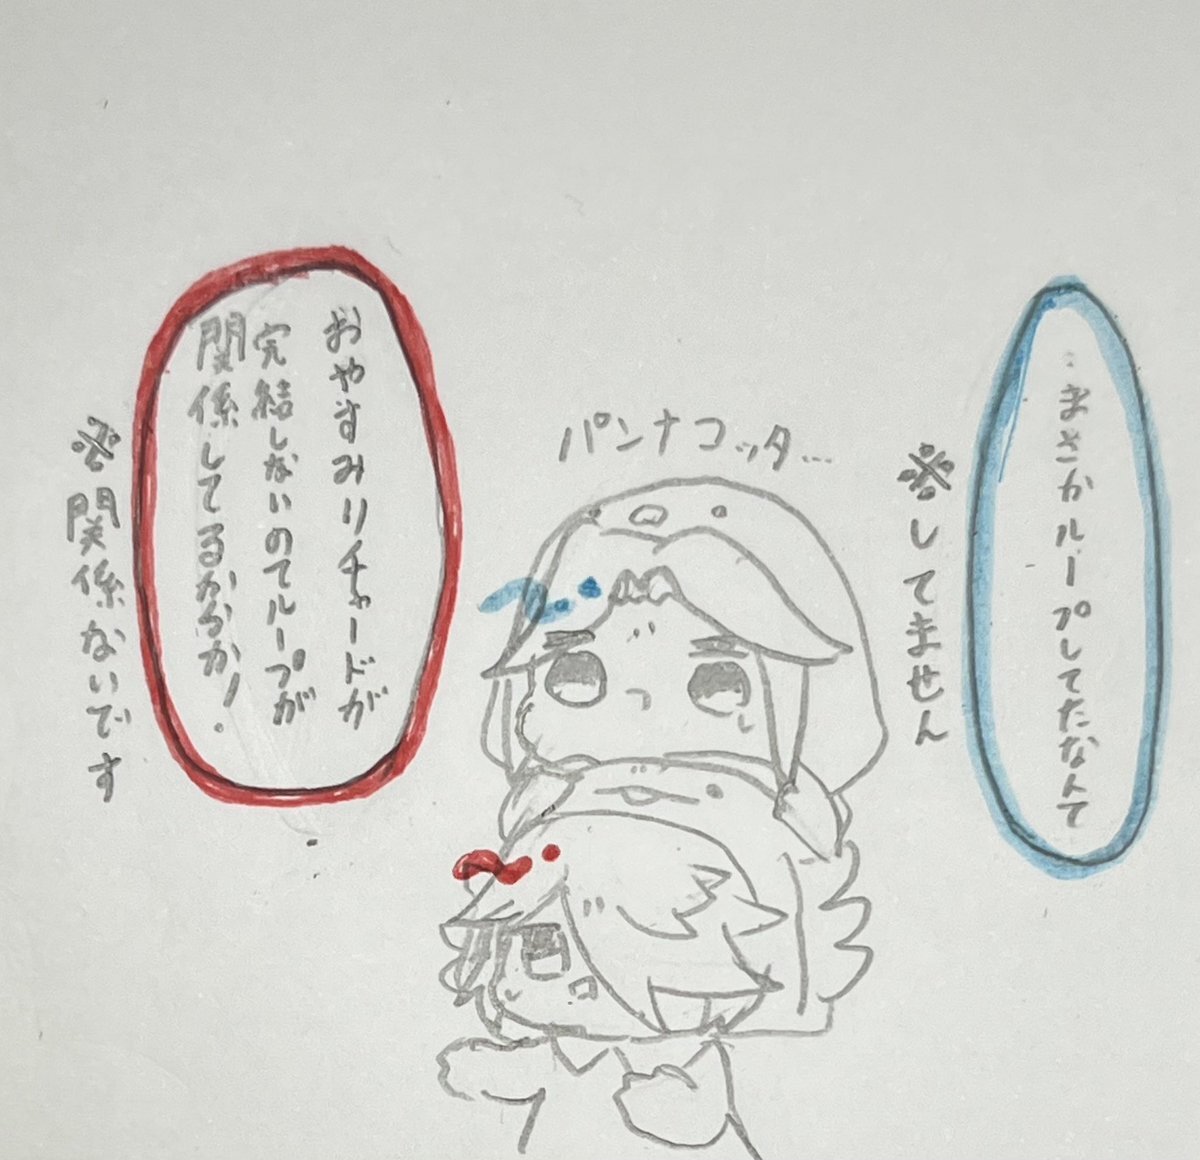 …まさかループしてたなんて
※してません
パンナコッタ…
おやすみリチャードが
完結しないのてループが
関係してるかるか!.
※関係ないです